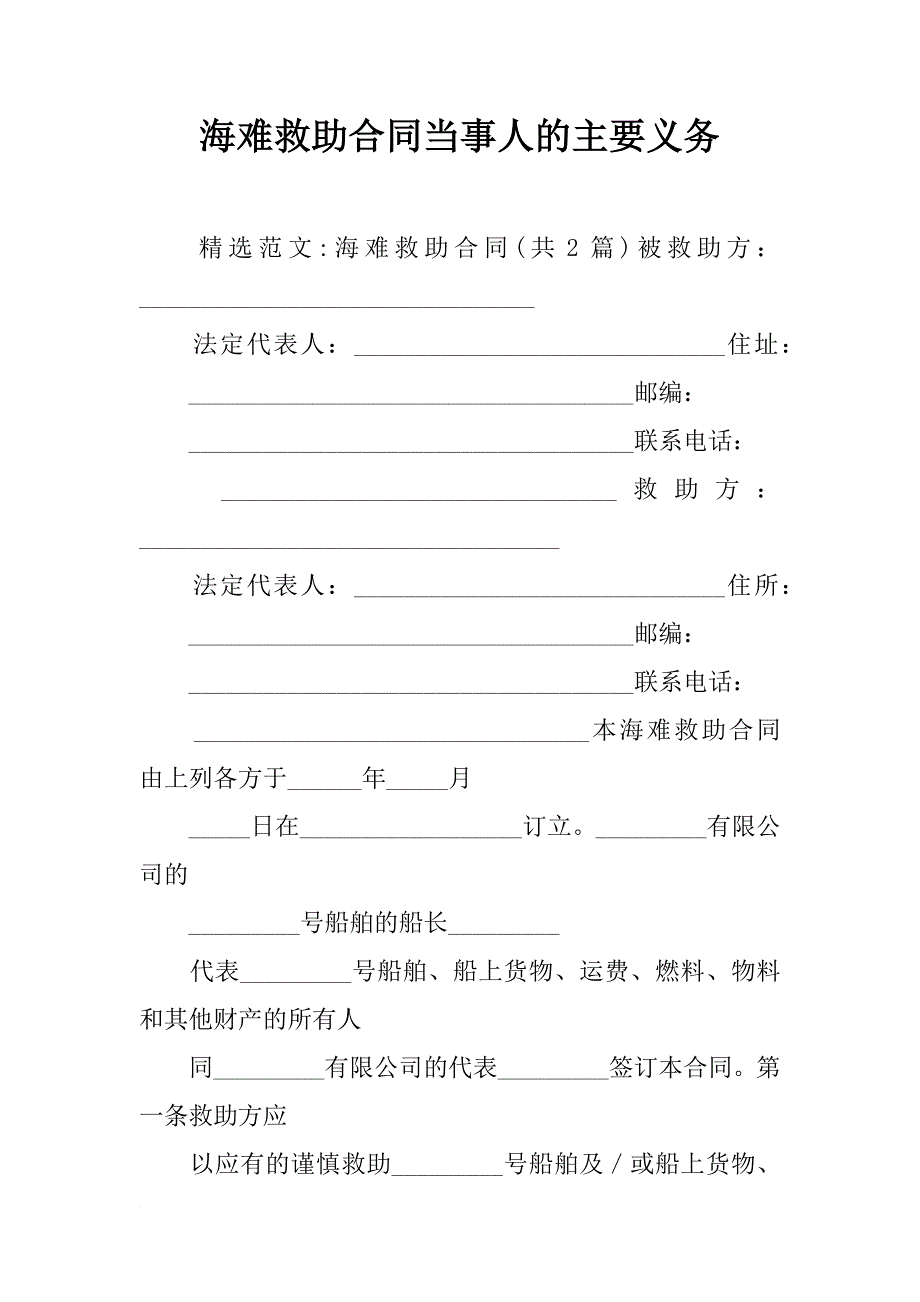 海难救助合同当事人的主要义务
精选范文:海难救助合同(共2篇)被救助方：
________________________________
法定代表人：______________________________住址：
____________________________________邮编：
____________________________________联系电话：
________________________________救助方：
__________________________________
法定代表人：______________________________住所：
____________________________________邮编：
____________________________________联系电话：
________________________________本海难救助合同
由上列各方于______年_____月
_____日在__________________订立。_________有限公
司的
_________号船舶的船长_________
代表_________号船舶、船上货物、运费、燃料、物料
和其他财产的所有人
同_________有限公司的代表_________签订本合同。第
一条救助方应
以应有的谨慎救助_________号船舶及／或船上货物、